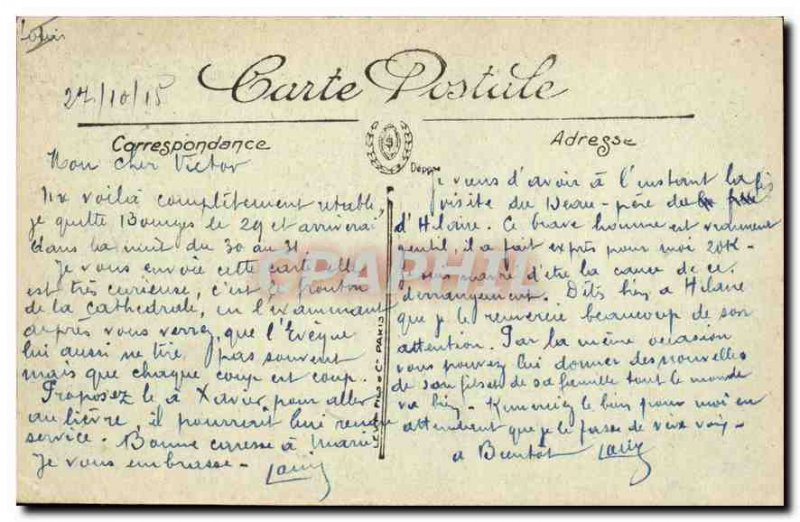 27/10/15
Carte Postale
Correspondance
Adresse
Dépose
Mon cher Victor
Me voilà complètement rétabli,
je quitte Bourges le 29 et arriverai
dans la nuit du 30 au 31.
Je vous envoie cette carte elle
est très curieuse, c'est le fronton
de la cathédrale, en l'examinant
de près vous verrez, que l'Evêque
lui aussi ne tire pas souvent
mais que chaque coup est coup.
Proposez le à Xavier pour aller
au lièvre, il pourrait leur rendre
service. Bonne caresse à Marie
Je vous embrasse -
Je viens d'avoir à l'instant la
visite du Beau-père du fils
d'Hilaire. Ce brave homme est vraiment
gentil, il a fait exprès pour moi 20K -
d'être la cause de ce
dérangement. Dites bien à Hilaire
que je le remercie beaucoup de son
attention. Par la même occasion
vous pouvez lui donner des nouvelles
de son fils et de sa famille tout le monde
va bien. Remerciez le bien pour moi en
attendant que je le fasse de vive voix -
a Bientôt
PARIS
GRAPHIL